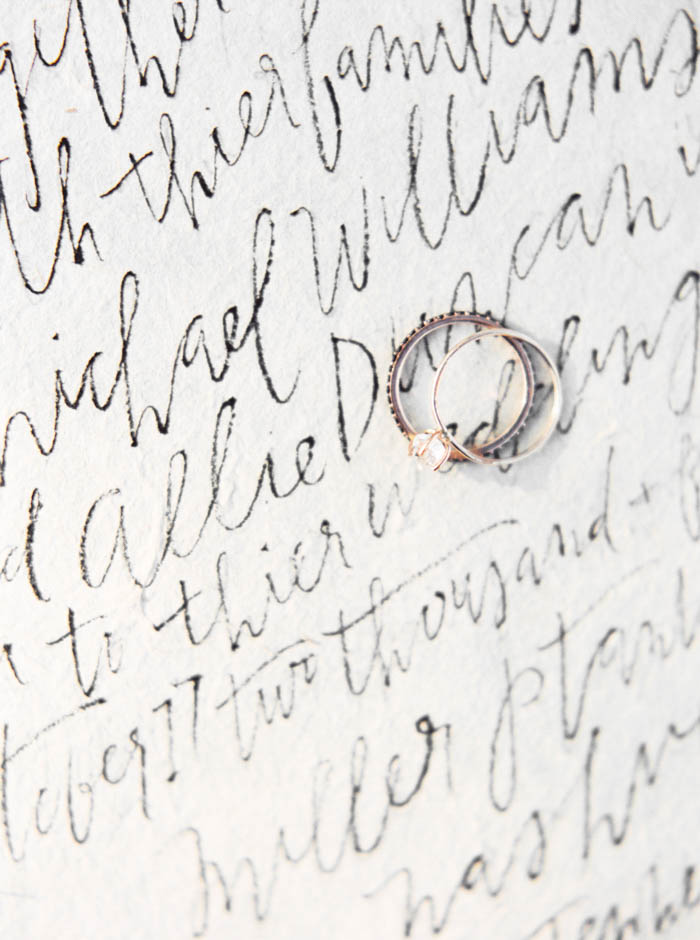 gether
th thier families
michael Williams
d allie Duncan
to thier wedding
tober 17 two thousand +
miller plant
nashv